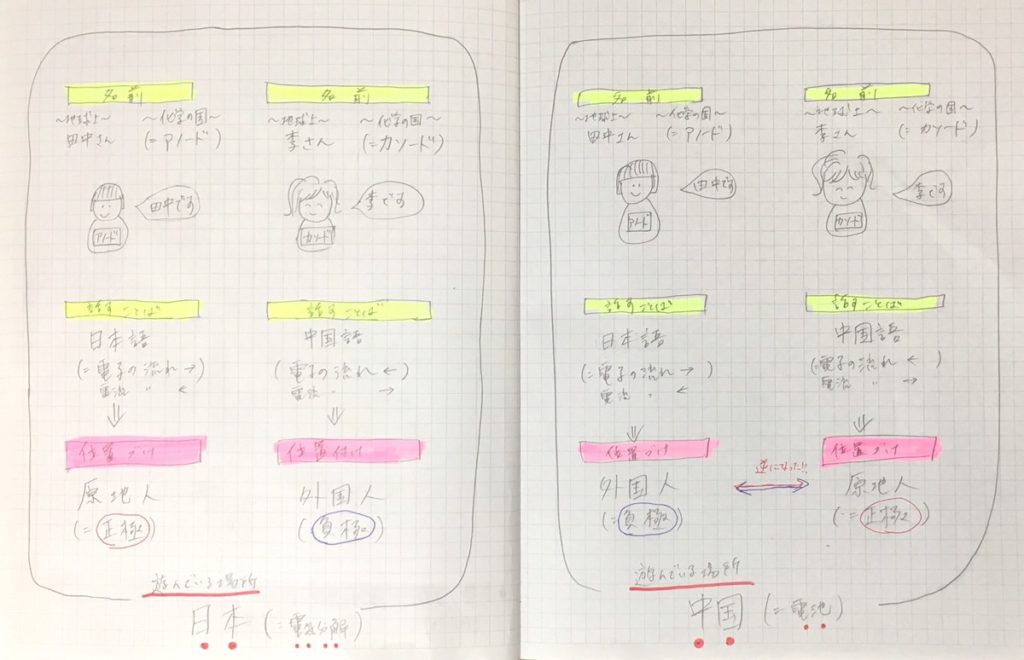 名前
名前
～地球上～
～化学の国～
～地球上～
～化学の国～
田中さん
(=アノード)
李さん
(=カソード)
田中です
李です
アノード
カソード
話すことば
話すことば
日本語
中国語
(=電子の流れ→)
(=電子の流れ←)
電流 〃 ←
電流 〃 →
⇓
⇓
位置づけ
位置付け
原地人
外国人
(=正極)
(=負極)
遊んでいる場所
日本(=電気分解)
名前
名前
～地球上～
～化学の国～
～地球上～
～化学の国～
田中さん
(=アノード)
李さん
(=カソード)
田中です
李です
アノード
カソード
話すことば
話すことば
日本語
中国語
(=電子の流れ→)
(=電子の流れ←)
電流 〃 ←
電流 〃 →
⇓
⇓
位置づけ
位置づけ
逆になった!!
外国人
原地人
(=負極)
(=正極)
遊んでいる場所
中国(=電池)